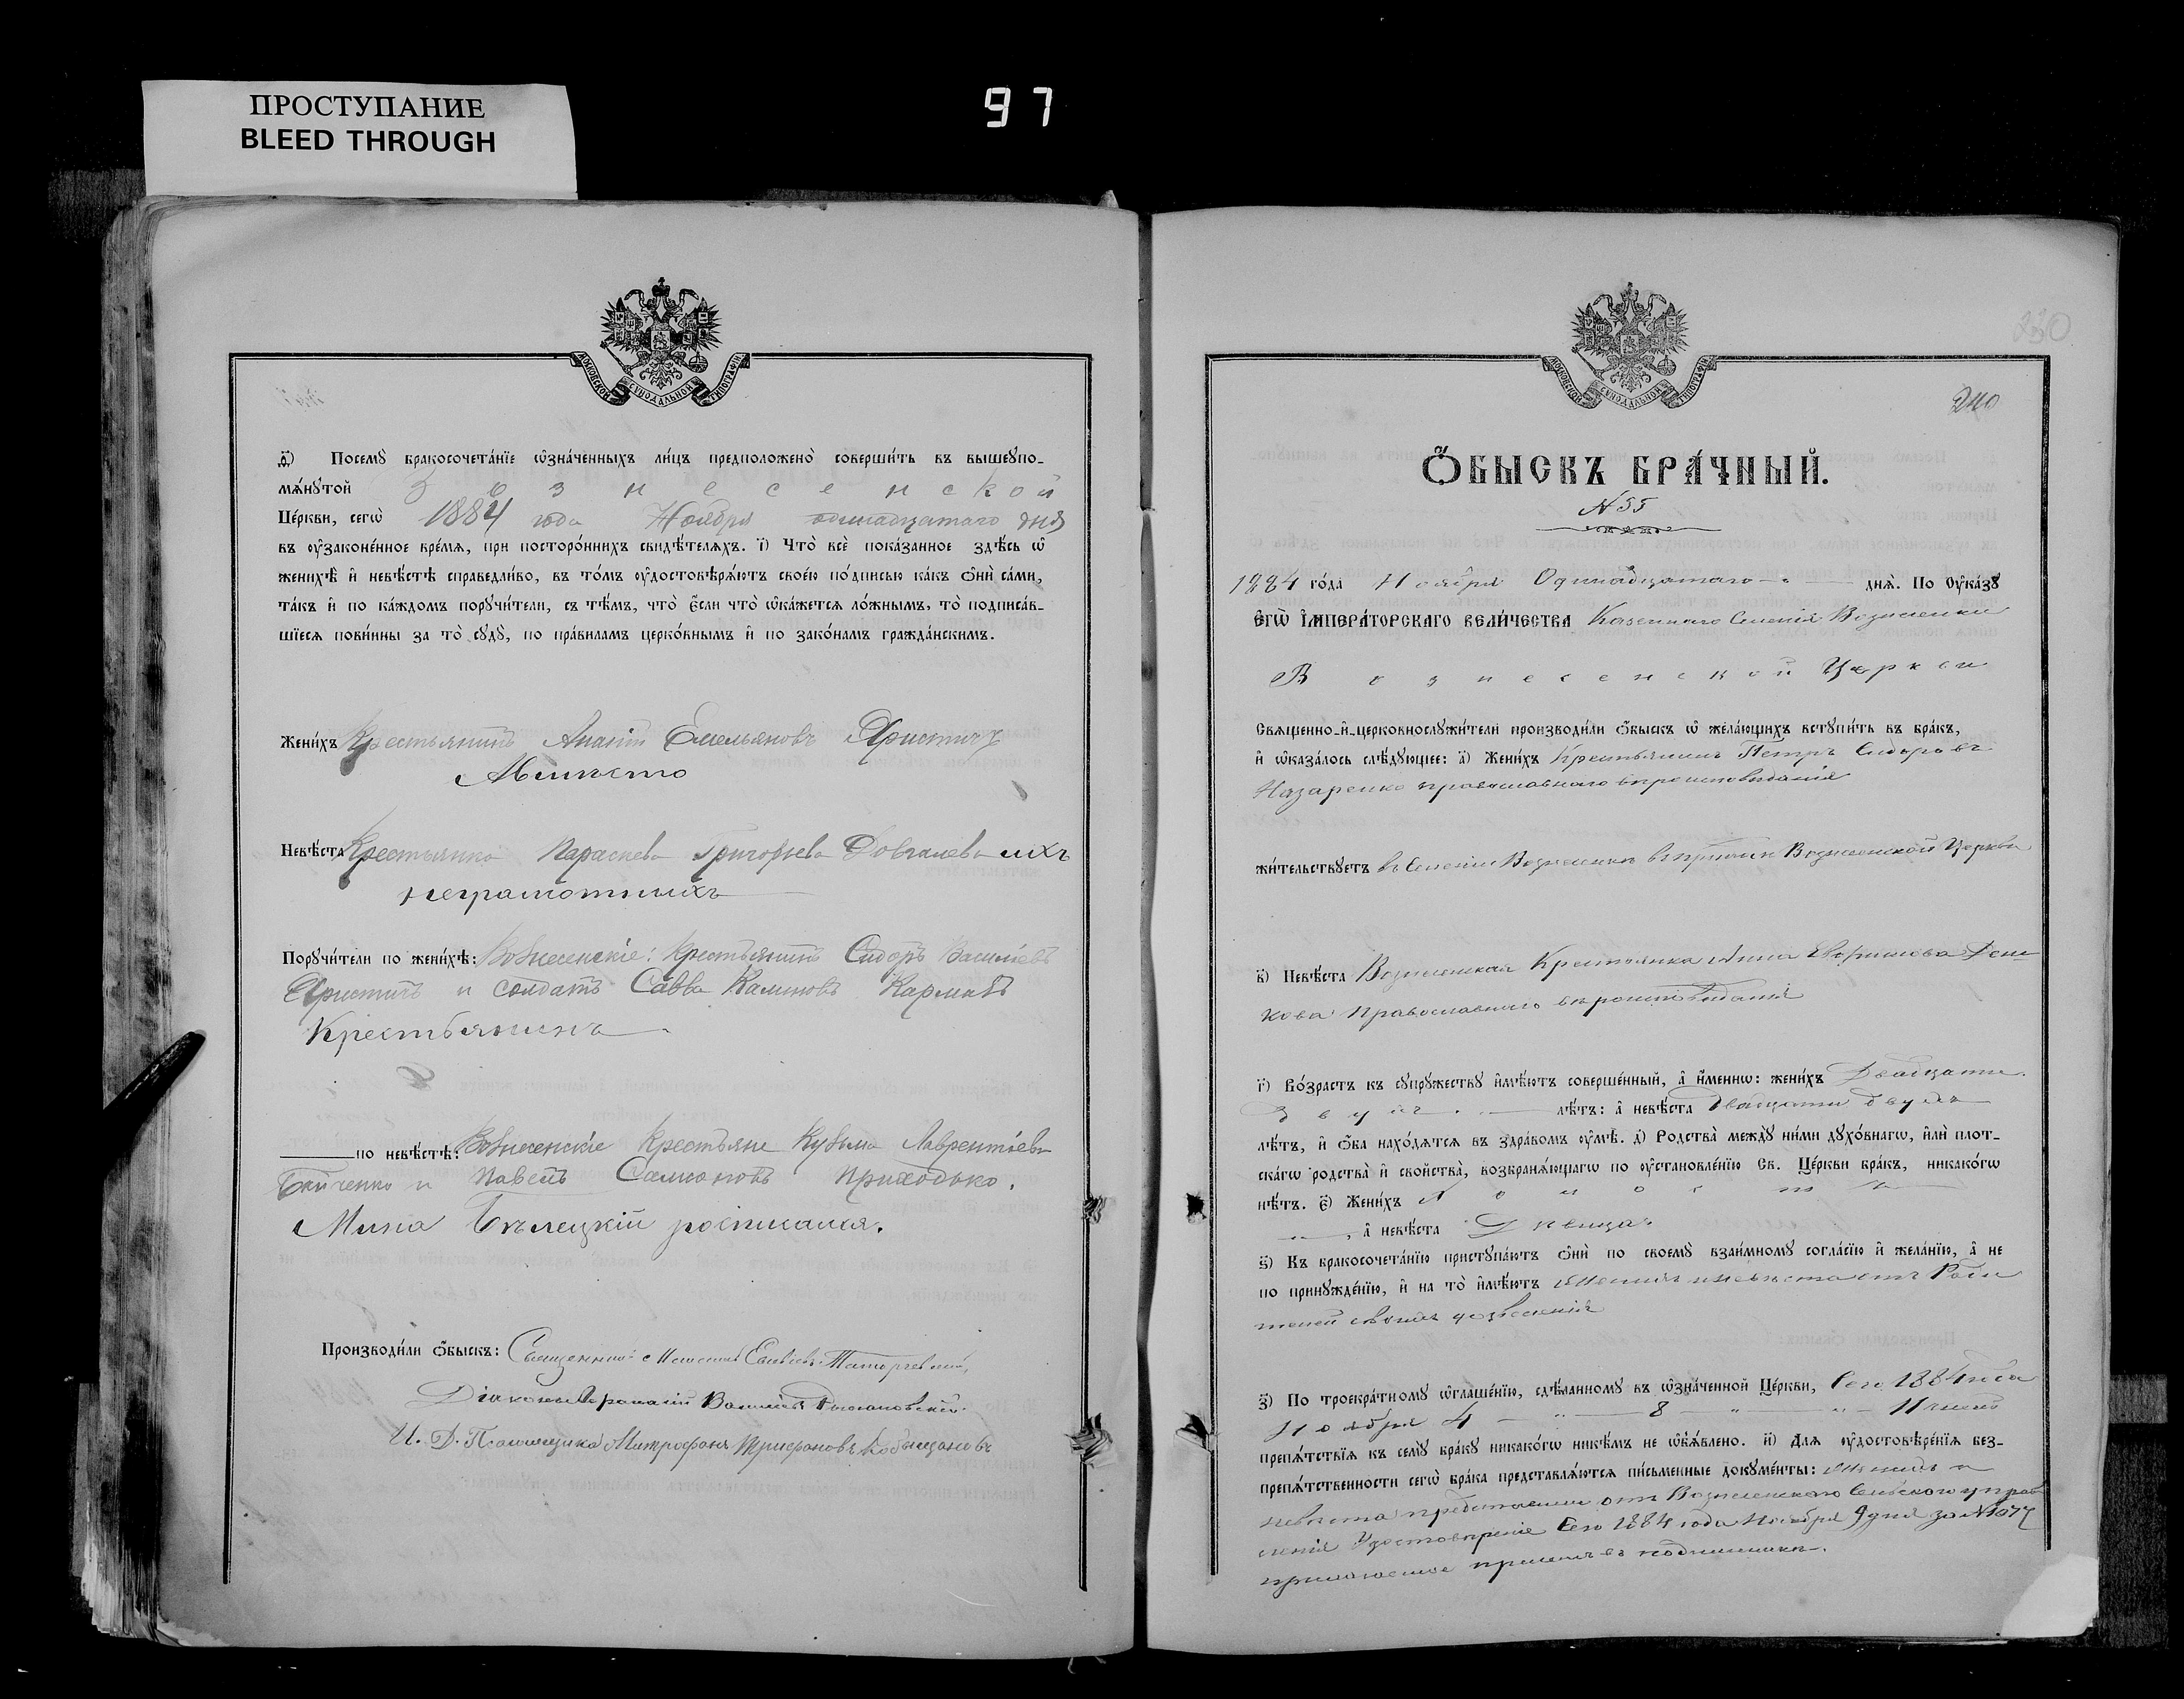 ПРОСТУПАНИЕ
BLEED THROUGH
97
МОСКОВСКОЙ СУНОДАЛЬНОЙ ТИПОГРАФІИ
ѳ҃) Посемꙋ̀ бракосочета́нїе ѡ҆зна́ченныхъ ли́цъ предположено̀ соверши́ть въ вышеꙋпо-
мѧ́нꙋтой Вознесенской
Це́ркви, сегѡ̀ 1884 года Ноября одинадцатаго дня
въ ᲂу҆законе́нное вре́мѧ, при посторо́ннихъ свидѣ́телѧхъ. і҃) Что̀ всѐ пока́занное здѣ́сь ѡ҆
женихѣ̀ и҆ невѣ́стѣ справедли́во, въ то́мъ ᲂу҆достовѣрѧ́ютъ свое́ю по́дписью ка́къ ѻ҆нѝ са́ми,
та́къ и҆ по ка́ждомъ порꙋчи́тели, съ тѣ́мъ, что̀ є҆́сли что̀ ѡ҆ка́жетсѧ ло́жнымъ, то̀ подписа́в-
шїесѧ пови́нны за то̀ сꙋдꙋ̀, по пра́виламъ церко́внымъ и҆ по зако́намъ гражда́нскимъ.
Жени́хъ Крестьянинъ Емельяновъ
Невѣ́ста Крестьянка Параскева Григорьева Довгалева ихъ
неграмотныхъ
Порꙋчи́тели по женихѣ̀: Вознесенскіе: Крестьянинъ Сидоръ Васильевъ
и солдатъ Савва
Крестьянинъ
по невѣ́стѣ: Вознесенскіе Крестьяне Кузьма Лаврентіевъ
и Павелъ Приходько.
Мина Бѣлецкій росписался.
Производи́ли ѻ҆́быскъ: Священникъ
Діаконъ Василій
И. Д. Псаломщика Митрофанъ Трифоновъ
230
240
МОСКОВСКОЙ СУНОДАЛЬНОЙ ТИПОГРАФІИ
Ѻ҆́БЫСКЪ БРА́ЧНЫЙ.
N 55
1884 го́да Ноября Одинадцатаго днѧ̀. По ᲂу҆ка́зꙋ
Є҆гѡ̀ И҆мпера́торскаго Вели́чества Казеннаго Селенія Вознесенки
Вознесенской Церкви
Свѧще́нно-и҆-церковнослꙋжи́тели производи́ли ѻ҆́быскъ ѡ҆ жела́ющихъ встꙋпи́ть въ бра́къ,
и҆ ѡ҆каза́лось слѣ́дꙋющее: а҃) Жени́хъ Крестьянинъ Петръ Сидоровъ
Назаренко православнаго вѣроисповѣданія
жи́тельствꙋетъ въ Селеніи Вознесенкѣ въ приходѣ Вознесенской Церкви
в҃) Невѣ́ста Вознесенская Крестьянка Анна Ефимова Дени-
кова Православнаго вѣроисповѣданія
г҃) Во́зрастъ къ сꙋпрꙋ́жествꙋ и҆мѣ́ютъ соверше́нный, а҆ и҆́меннѡ: жени́хъ Двадцати
двухъ лѣ́тъ: а҆ невѣ́ста двадцати двухъ
лѣ́тъ, и҆ ѻ҆́ба нахо́дѧтсѧ въ здра́вомъ ᲂу҆мѣ̀. д҃) Родства̀ междꙋ̀ ни́ми дꙋхо́внагѡ, и҆лѝ плот-
ска́гѡ родства̀ и҆ свойства̀, возбранѧ́ющагѡ по ᲂу҆становле́нїю Св. Це́ркви бра́къ, никако́гѡ
нѣ́тъ. є҃) Жени́хъ Холостъ
, а҆ невѣ́ста Дѣвица.
ѕ҃) Къ бракосочета́нїю пристꙋпа́ютъ ѻ҆нѝ по своемꙋ̀ взаи́мномꙋ согла́сїю и҆ жела́нїю, а҆ не
по принꙋжде́нїю, и҆ на то̀ и҆мѣ́ютъ Женихъ и невѣста отъ Роди-
телей своихъ дозволенія
з҃) По троекра́тномꙋ ѡ҆глаше́нїю, сдѣ́ланномꙋ въ ѡ҆зна́ченной Це́ркви, Сего 1884 года
Ноября 4 — 8 — 11 чиселъ
препѧ́тствїѧ къ семꙋ̀ бра́кꙋ никако́гѡ никѣ́мъ не ѡ҆б̾ѧ́влено. и҃) Длѧ ᲂу҆достовѣре́нїѧ без-
препѧ́тственности сегѡ̀ бра́ка представлѧ́ютсѧ пи́сьменные докꙋме́нты: Женихъ и
невѣста представили отъ Вознесенскаго Сельскаго управ-
ленія Удостовѣреніе Сего 1884 года Ноября 9 дня за № 1077